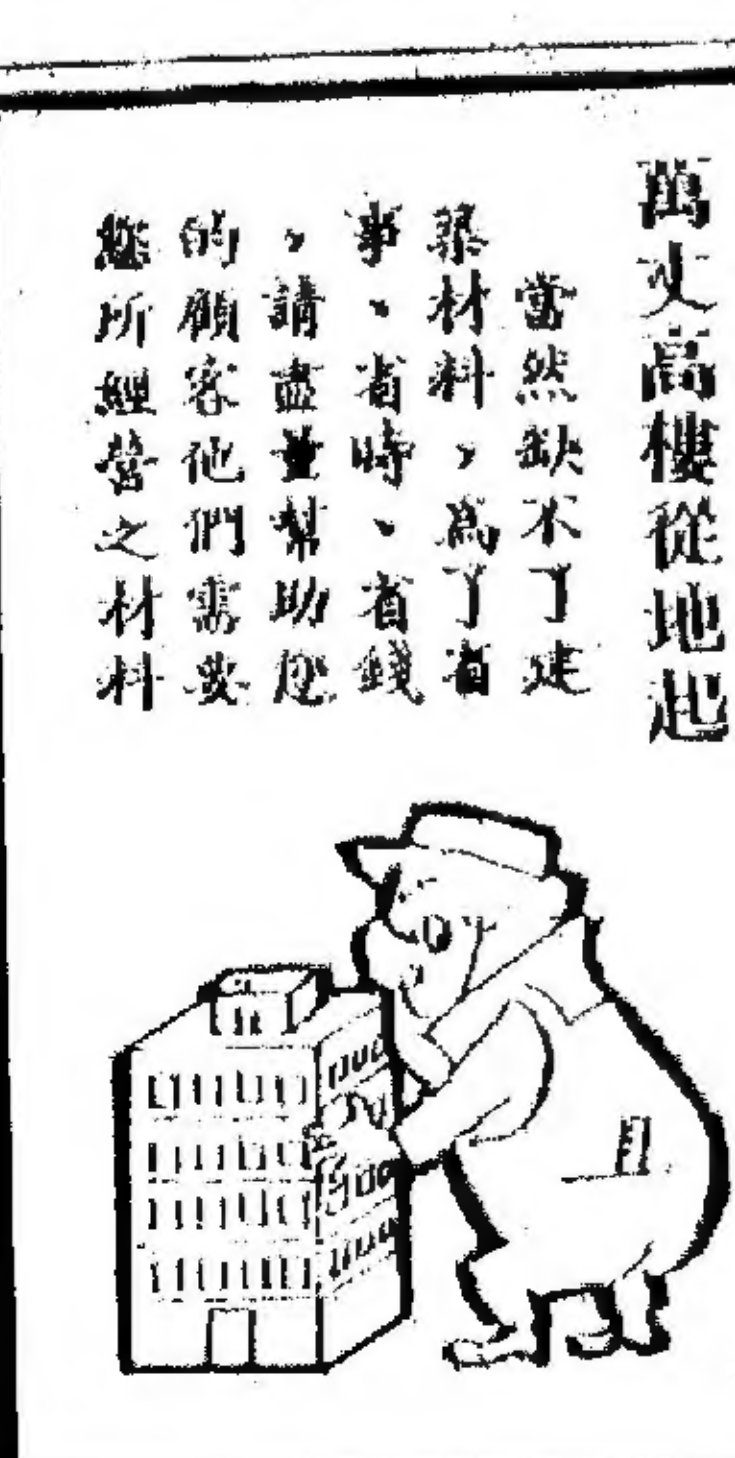 萬丈高樓從地起
當然缺不了建
築材料，為了省
事、省時、省錢
，請盡量幫助您
的顧客他們需要
您所經營之材料